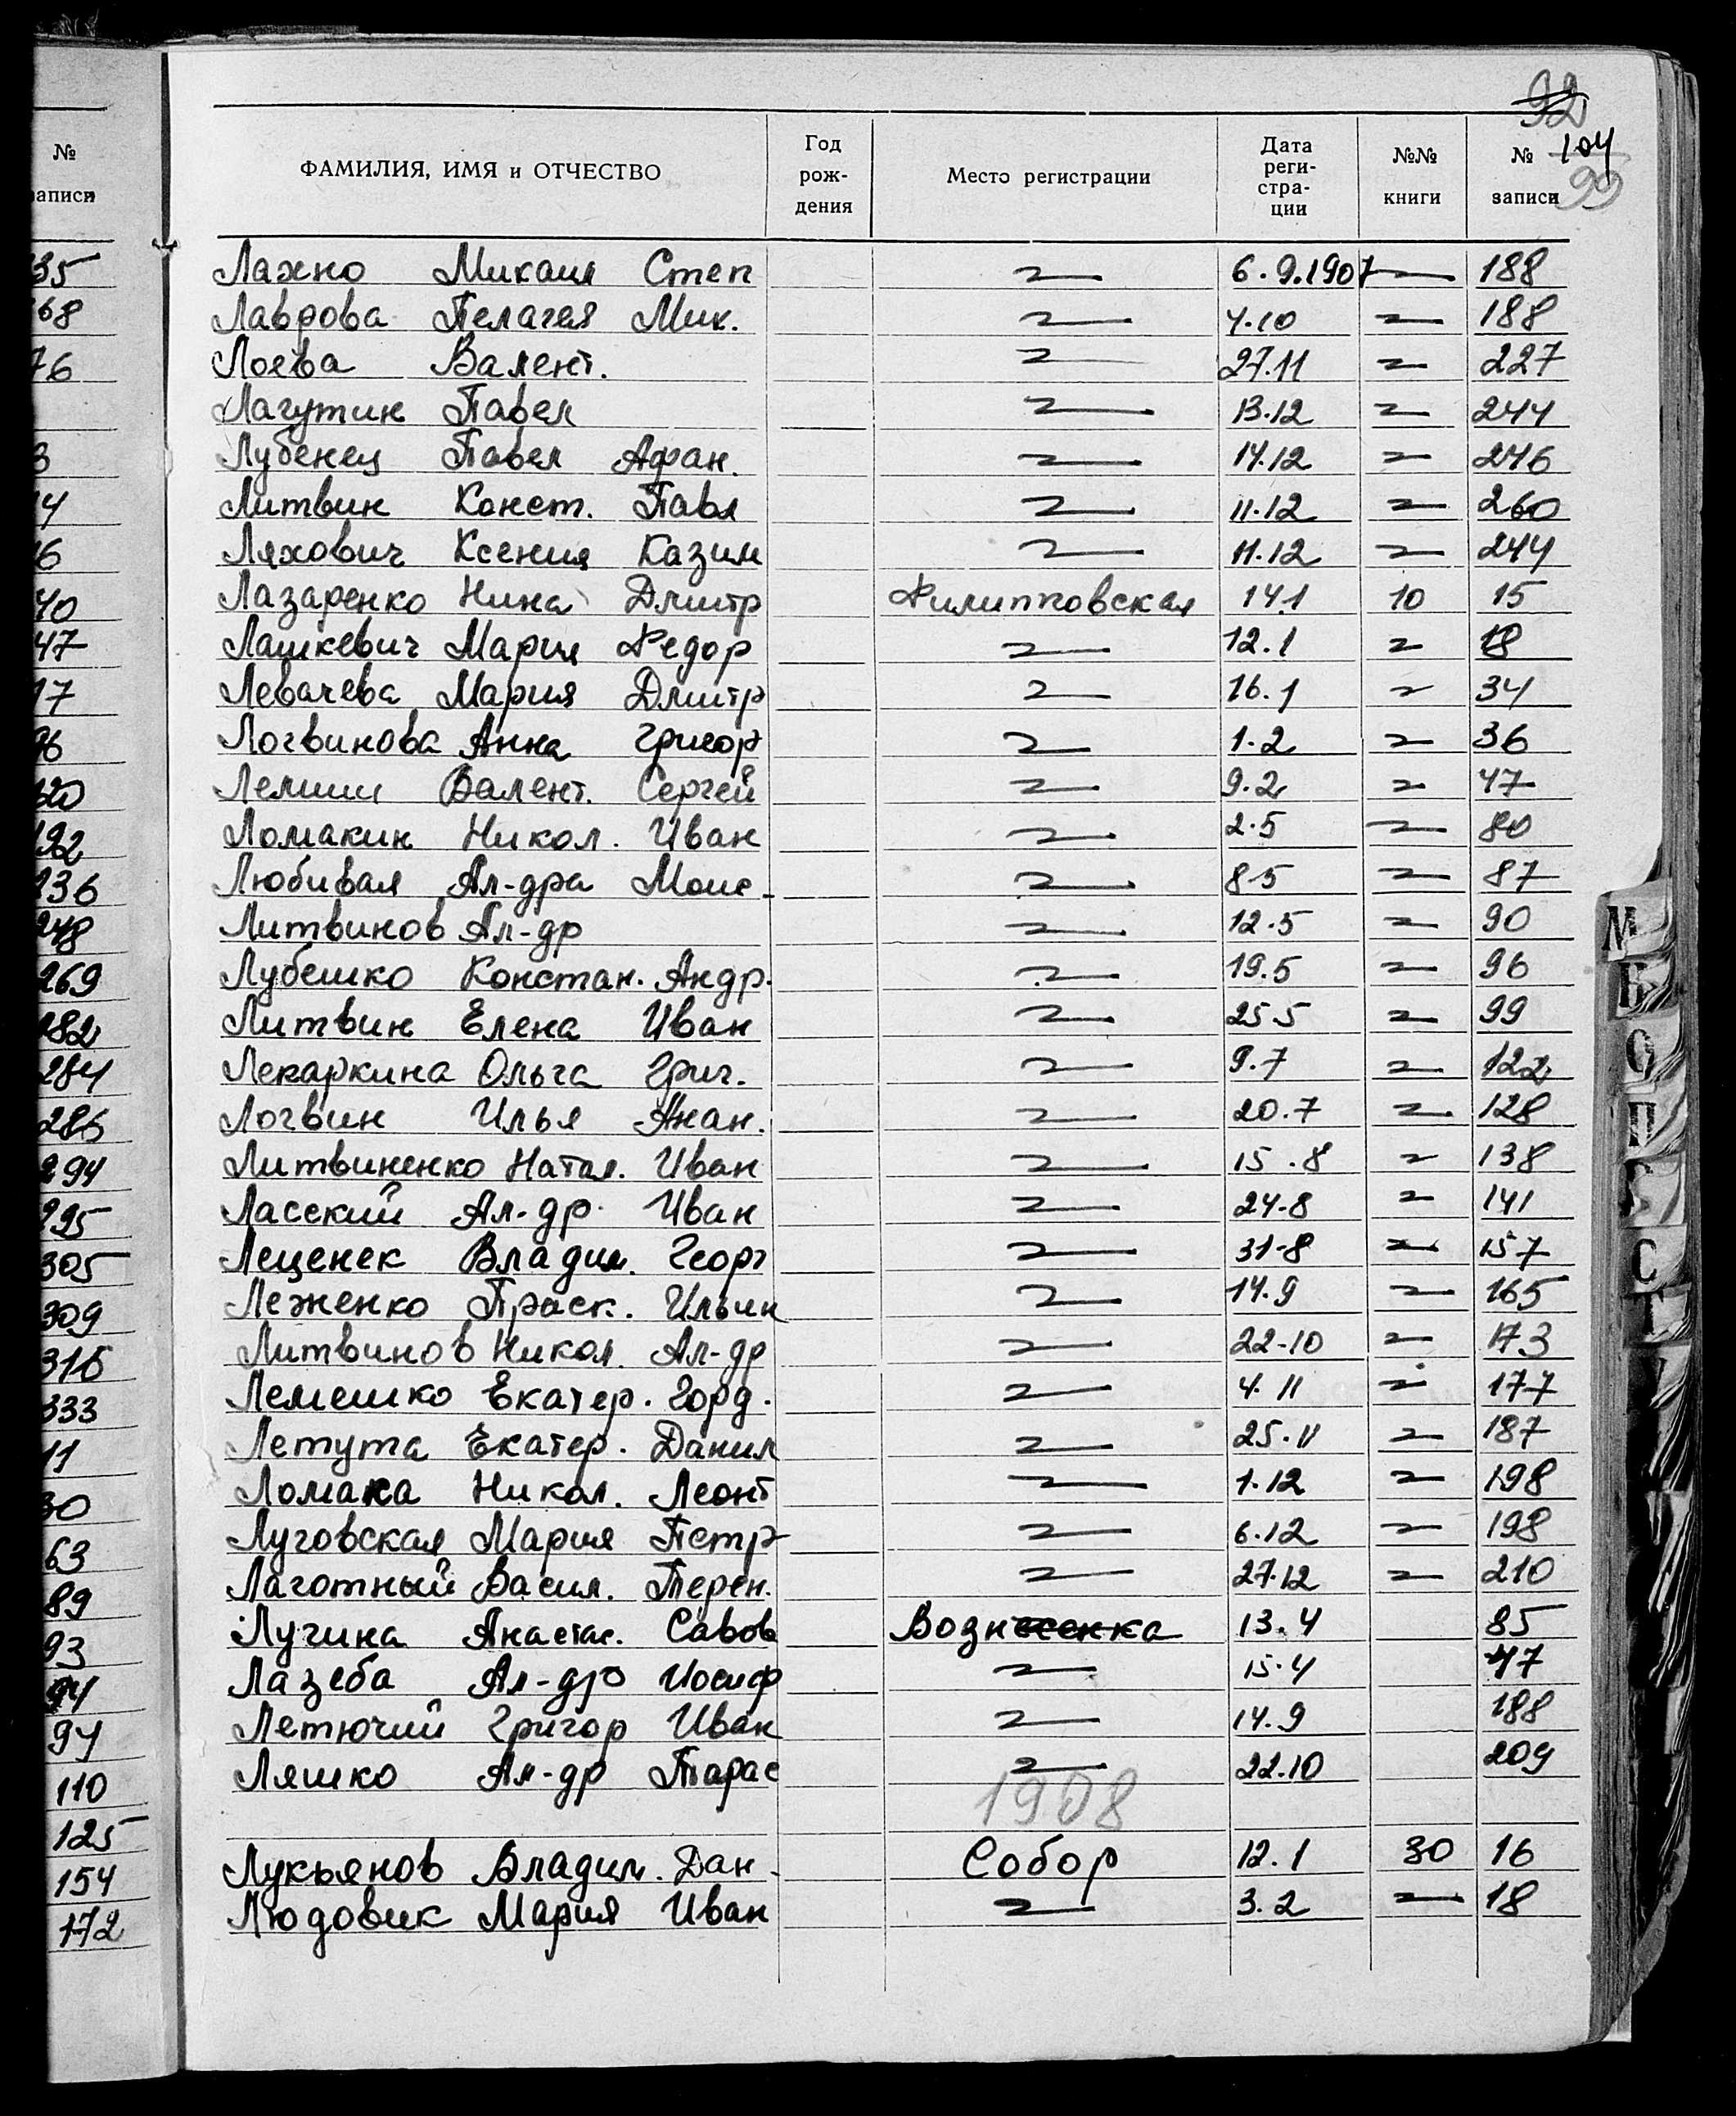 92
104
99
№ записи
ФАМИЛИЯ, ИМЯ и ОТЧЕСТВО Год рождения Место регистрации Дата регистрации №№ книги № записи
35 Лахно Михаил Степ 〃 6.9.1907 〃 188
68 Лаврова Пелагея Мих. 〃 7.10 〃 188
76 Лоева Валент. 〃 27.11 〃 227
Лагутин Павел 〃 13.12 〃 244
3 Лубенец Павел Афан. 〃 14.12 〃 246
Литвин Конст. Павл 〃 11.12 〃 260
6 Ляхович Ксения Казим 〃 11.12 〃 244
40 Лазаренко Нина Дмитр Филипповская 14.1 10 15
47 Лашкевич Мария Федор 〃 12.1 〃 18
17 Левачева Мария Дмитр 〃 16.1 〃 34
96 Логвинова Анна Григор 〃 1.2 〃 36
Лемиш Валент. Сергей 〃 9.2 〃 47
192 Ломакин Никол. Иван 〃 2.5 〃 80
236 Любивая Ал-дра Моис. 〃 8-5 〃 87
248 Литвинов Ал-др 〃 12.5 〃 90
269 Лубешко Констан. Андр. 〃 19.5 〃 96
282 Литвин Елена Иван 〃 25-5 〃 99
284 Лекаркина Ольга Григ. 〃 9.7 〃 122
286 Логвин Илья Анан. 〃 20.7 〃 128
294 Литвиненко Натал. Иван 〃 15.8 〃 138
295 Ласский Ал-др Иван 〃 24-8 〃 141
305 Леценек Владим. Георг 〃 31-8 〃 157
309 Леженко Праск. Ильин 〃 14.9 〃 165
316 Литвинов Никол. Ал-др 〃 22-10 〃 173
333 Лемешко Екатер. Горд. 〃 4.11 〃 177
11 Летута Екатер. Данил 〃 25.11 〃 187
30 Ломака Никол. Леонт 〃 1.12 〃 198
63 Луговская Мария Петр 〃 6.12 〃 198
89 Лаготный Васил. Терен. 〃 27.12 〃 210
93 Лучина Анастас. Савов Вознесенка 13.4 85
94 Лазеба Ал-др Иосиф 〃 15.4 47
94 Летючий Григор Иван 〃 14.9 188
110 Ляшко Ал-др Тарас 〃 22.10 209
125 1908
154 Лукьянов Владим. Дан. Собор 12.1 30 16
172 Людовик Мария Иван 〃 3.2 〃 18
М
О
П
С
Т